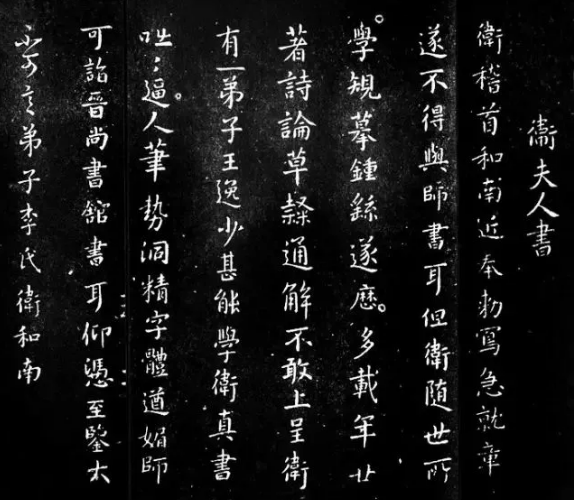 衛夫人書
衛稽首和南近奉勅寫急就章
遂不得與師書耳但衛隨世所
學規摹鍾繇遂歷多載年廿
著詩論草隸通解不敢上呈衛
有一弟子王逸少甚能學衛真書
咄咄逼人筆勢洞精字體遒媚師
可詣晉尚書館書耳仰憑至鑒大
不可言弟子李氏衛和南